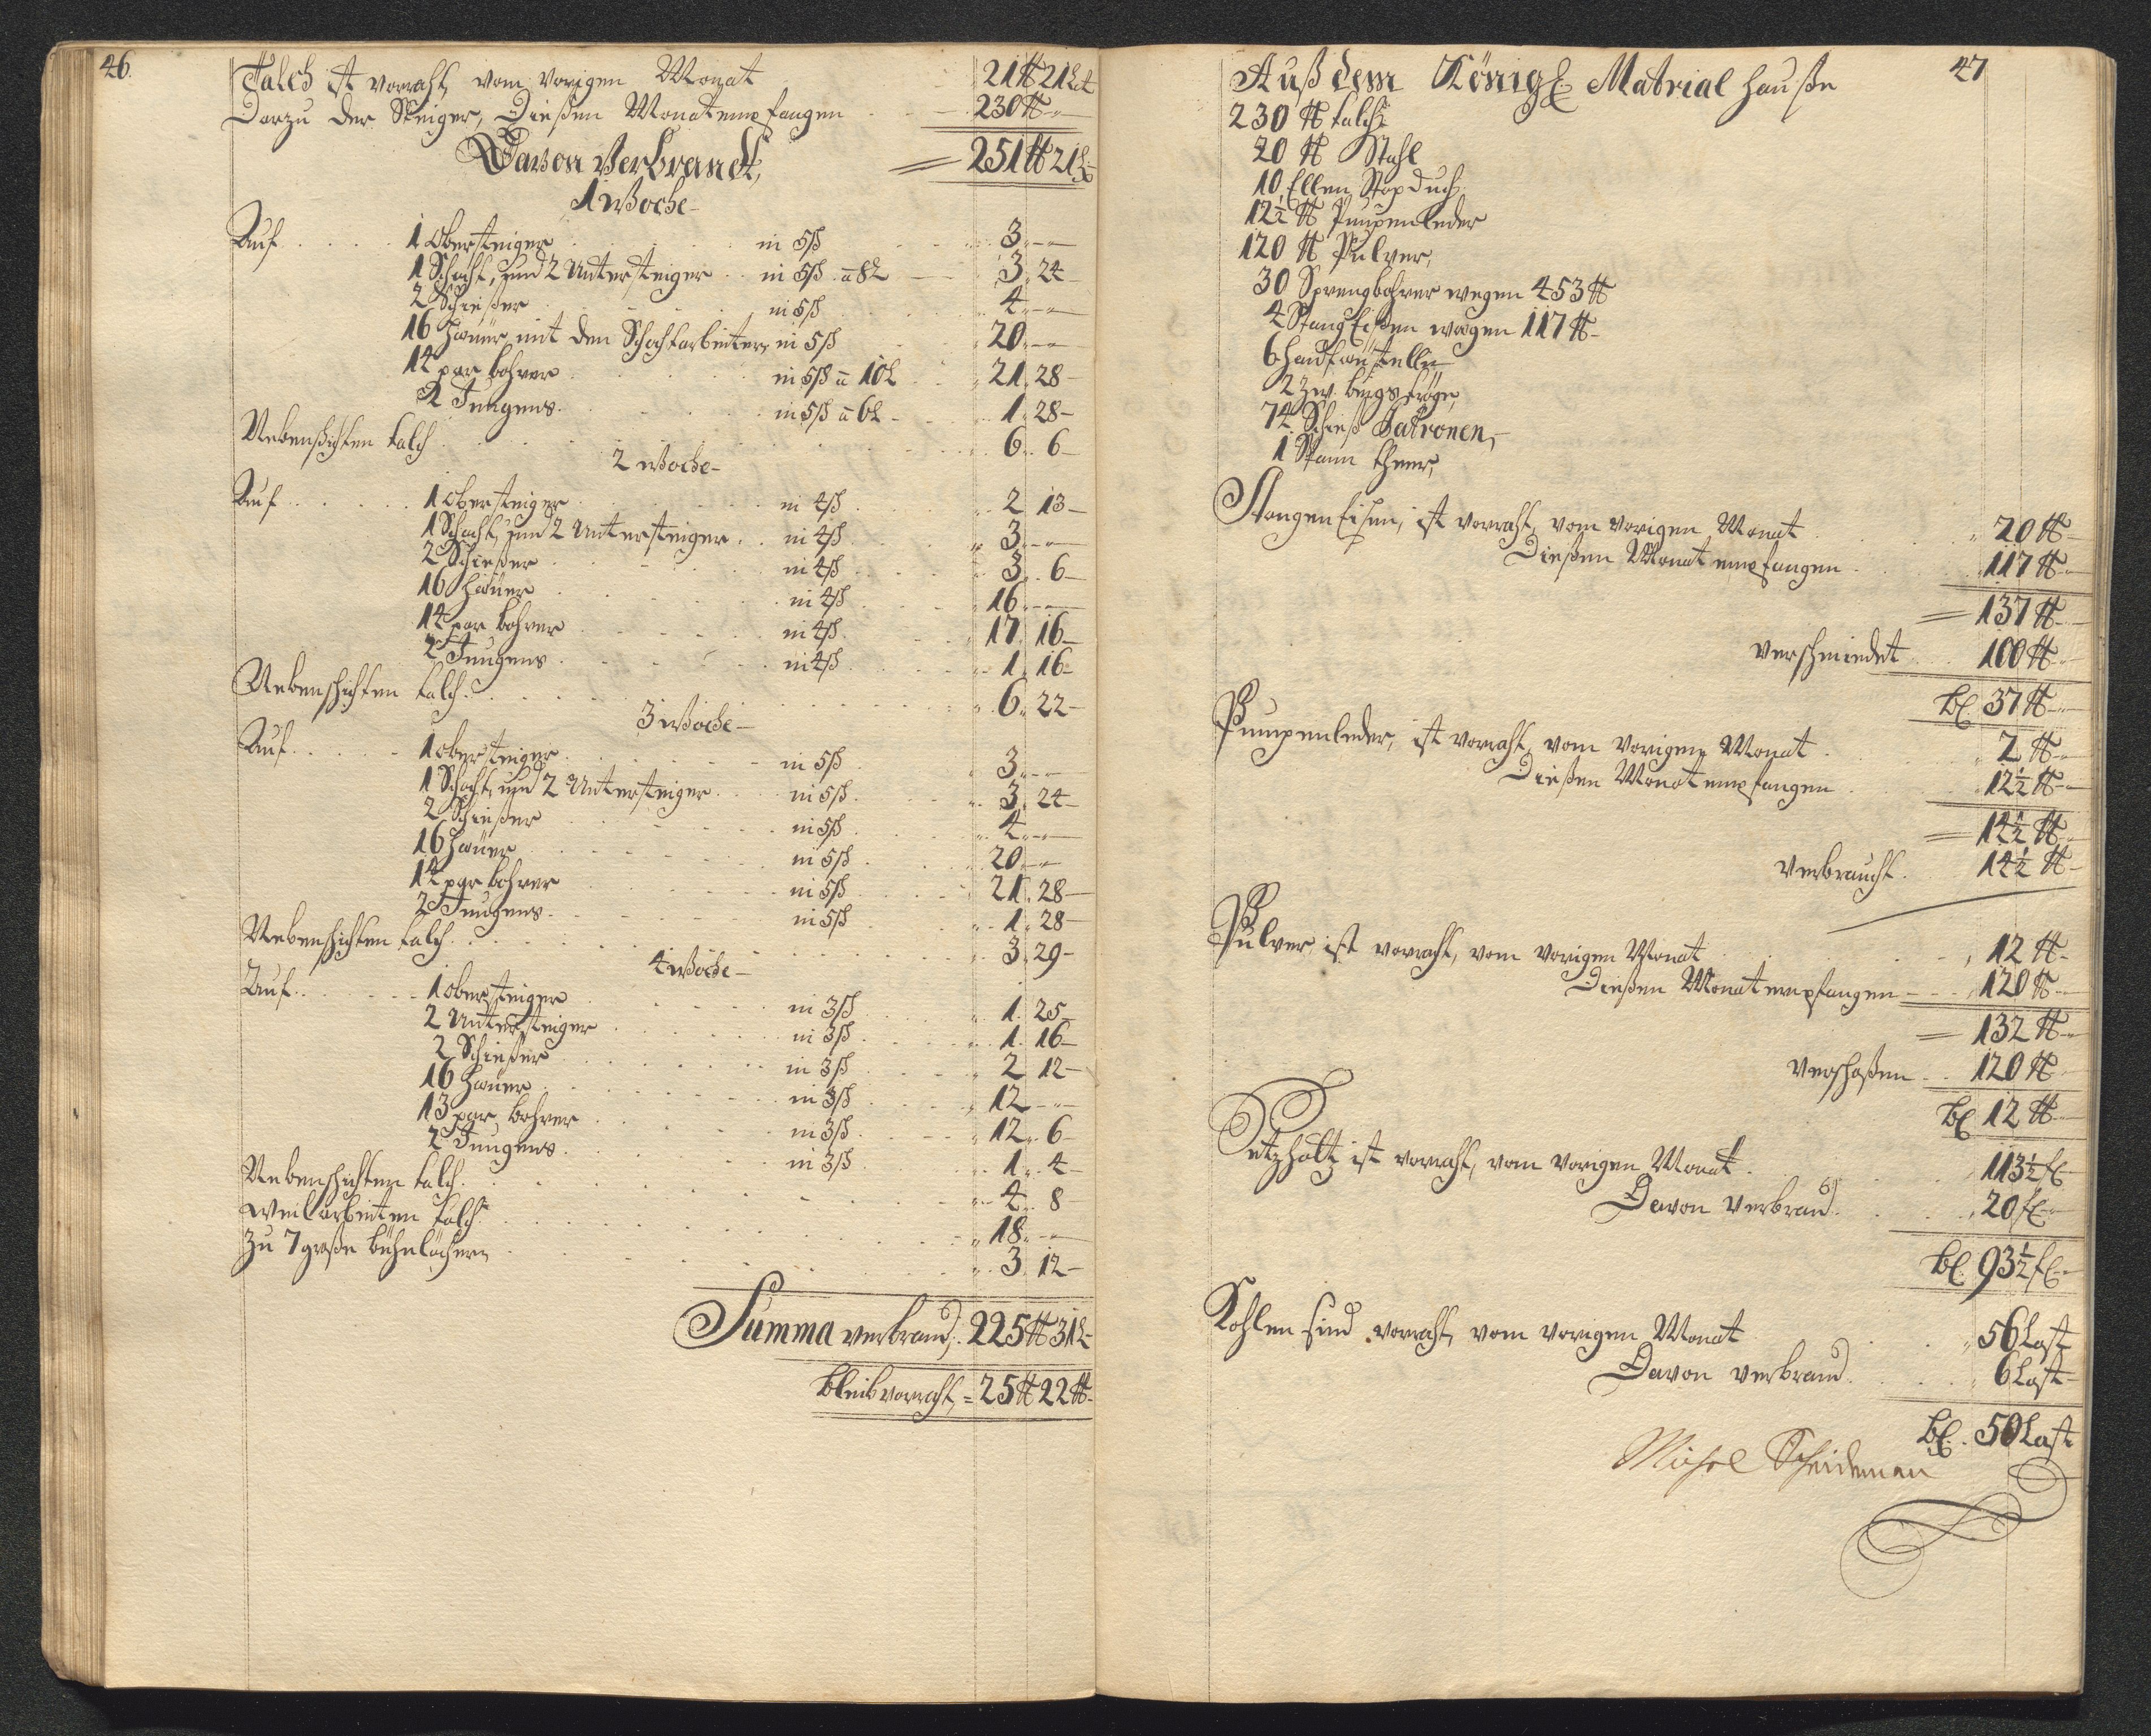 46.
Talch ist vorraht, vom vorigen Monat 21 ℔ 21 Lt
Darzu der Steiger, Dießen Monat empfangen 230 ℔
= 251 ℔ 21 L
Davon Verbrandt,
1 Woche
Auf 1 Obersteiger in 5 ß 3
1 Schacht, und 2 Untersteiger in 5 ß a 8 L 3 24
2 Schießer in 5 ß 4
16 Hauer mit den Schachtarbeiter, in 5 ß 20
14 par bohrer in 5 ß a 10 L 21 28
2 Jungens in 5 ß a 6 L 1 28
Nebenschichten talch 6 6
2 Woche
Auf 1 Obersteiger in 4 ß 2 13
1 Schacht, und 2 Untersteiger in 4 ß 3
2 Schießer in 4 ß 3 6
16 Hauer in 4 ß 16
14 par bohrer in 4 ß 17 16
2 Jungens in 4 ß 1 16
Nebenschichten talch 6 22
3 Woche
Auf 1 obersteiger in 5 ß 3
1 Schacht, und 2 Untersteiger in 5 ß 3 24
2 Schießer in 5 ß 4
16 Hauer in 5 ß 20
14 par bohrer in 5 ß 21 28
2 Jungens in 5 ß 1 28
Nebenschichten talch 3 29
4 Woche
Auf 1 obersteiger in 3 ß 1 25
2 Untersteiger in 3 ß 1 16
2 Schießer in 3 ß 2 12
16 Hauer in 3 ß 12
13 par bohrer in 3 ß 12 6
2 Jungens in 3 ß 1 4
Nebenschichten talch 4 8
Weilarbeiten talch 18
Zu 7 große bühnlöchern 3 12
Summa verbrand, 225 ℔ 31 L
bleib vorraht, = 25 ℔ 22 ℔
47
Auß dem Königl Matrial hauße
230 ℔ talch
20 ℔ Stahl
10 Ellen Stopduch
12½ ℔ Pumpenleder
120 ℔ Pulver,
30 Sprengbohrer wegen 453 ℔
4 Stang Eißen wogen 117 ℔
6
2
74 Schieß Patronen,
1 theer,
Stangen Eisen, ist vorraht, vom vorigen Monat 20 ℔
Dießen Monat empfangen 117 ℔
= 137 ℔
verschmiedet 100 ℔
bl 37 ℔
Pumpenleder, ist vorraht, vom vorigen Monat 2 ℔
Dießen Monat empfangen 12½ ℔
= 14½ ℔
verbraucht 14½ ℔
Pulver ist vorraht, vom vorigen Monat 12 ℔
Dießen Monat empfangen 120 ℔
= 132 ℔
verschoßen 120 ℔
bl 12 ℔
Setzholtz ist vorraht, vom vorigen Monat 113½ fl
Davon verbrand 20 fl
bl 93½ fl
Kohlen sind vorraht, vom vorigen Monat 56 Last
Davon verbrand 6 Last
bl. 50 Last
Michel Scheideman